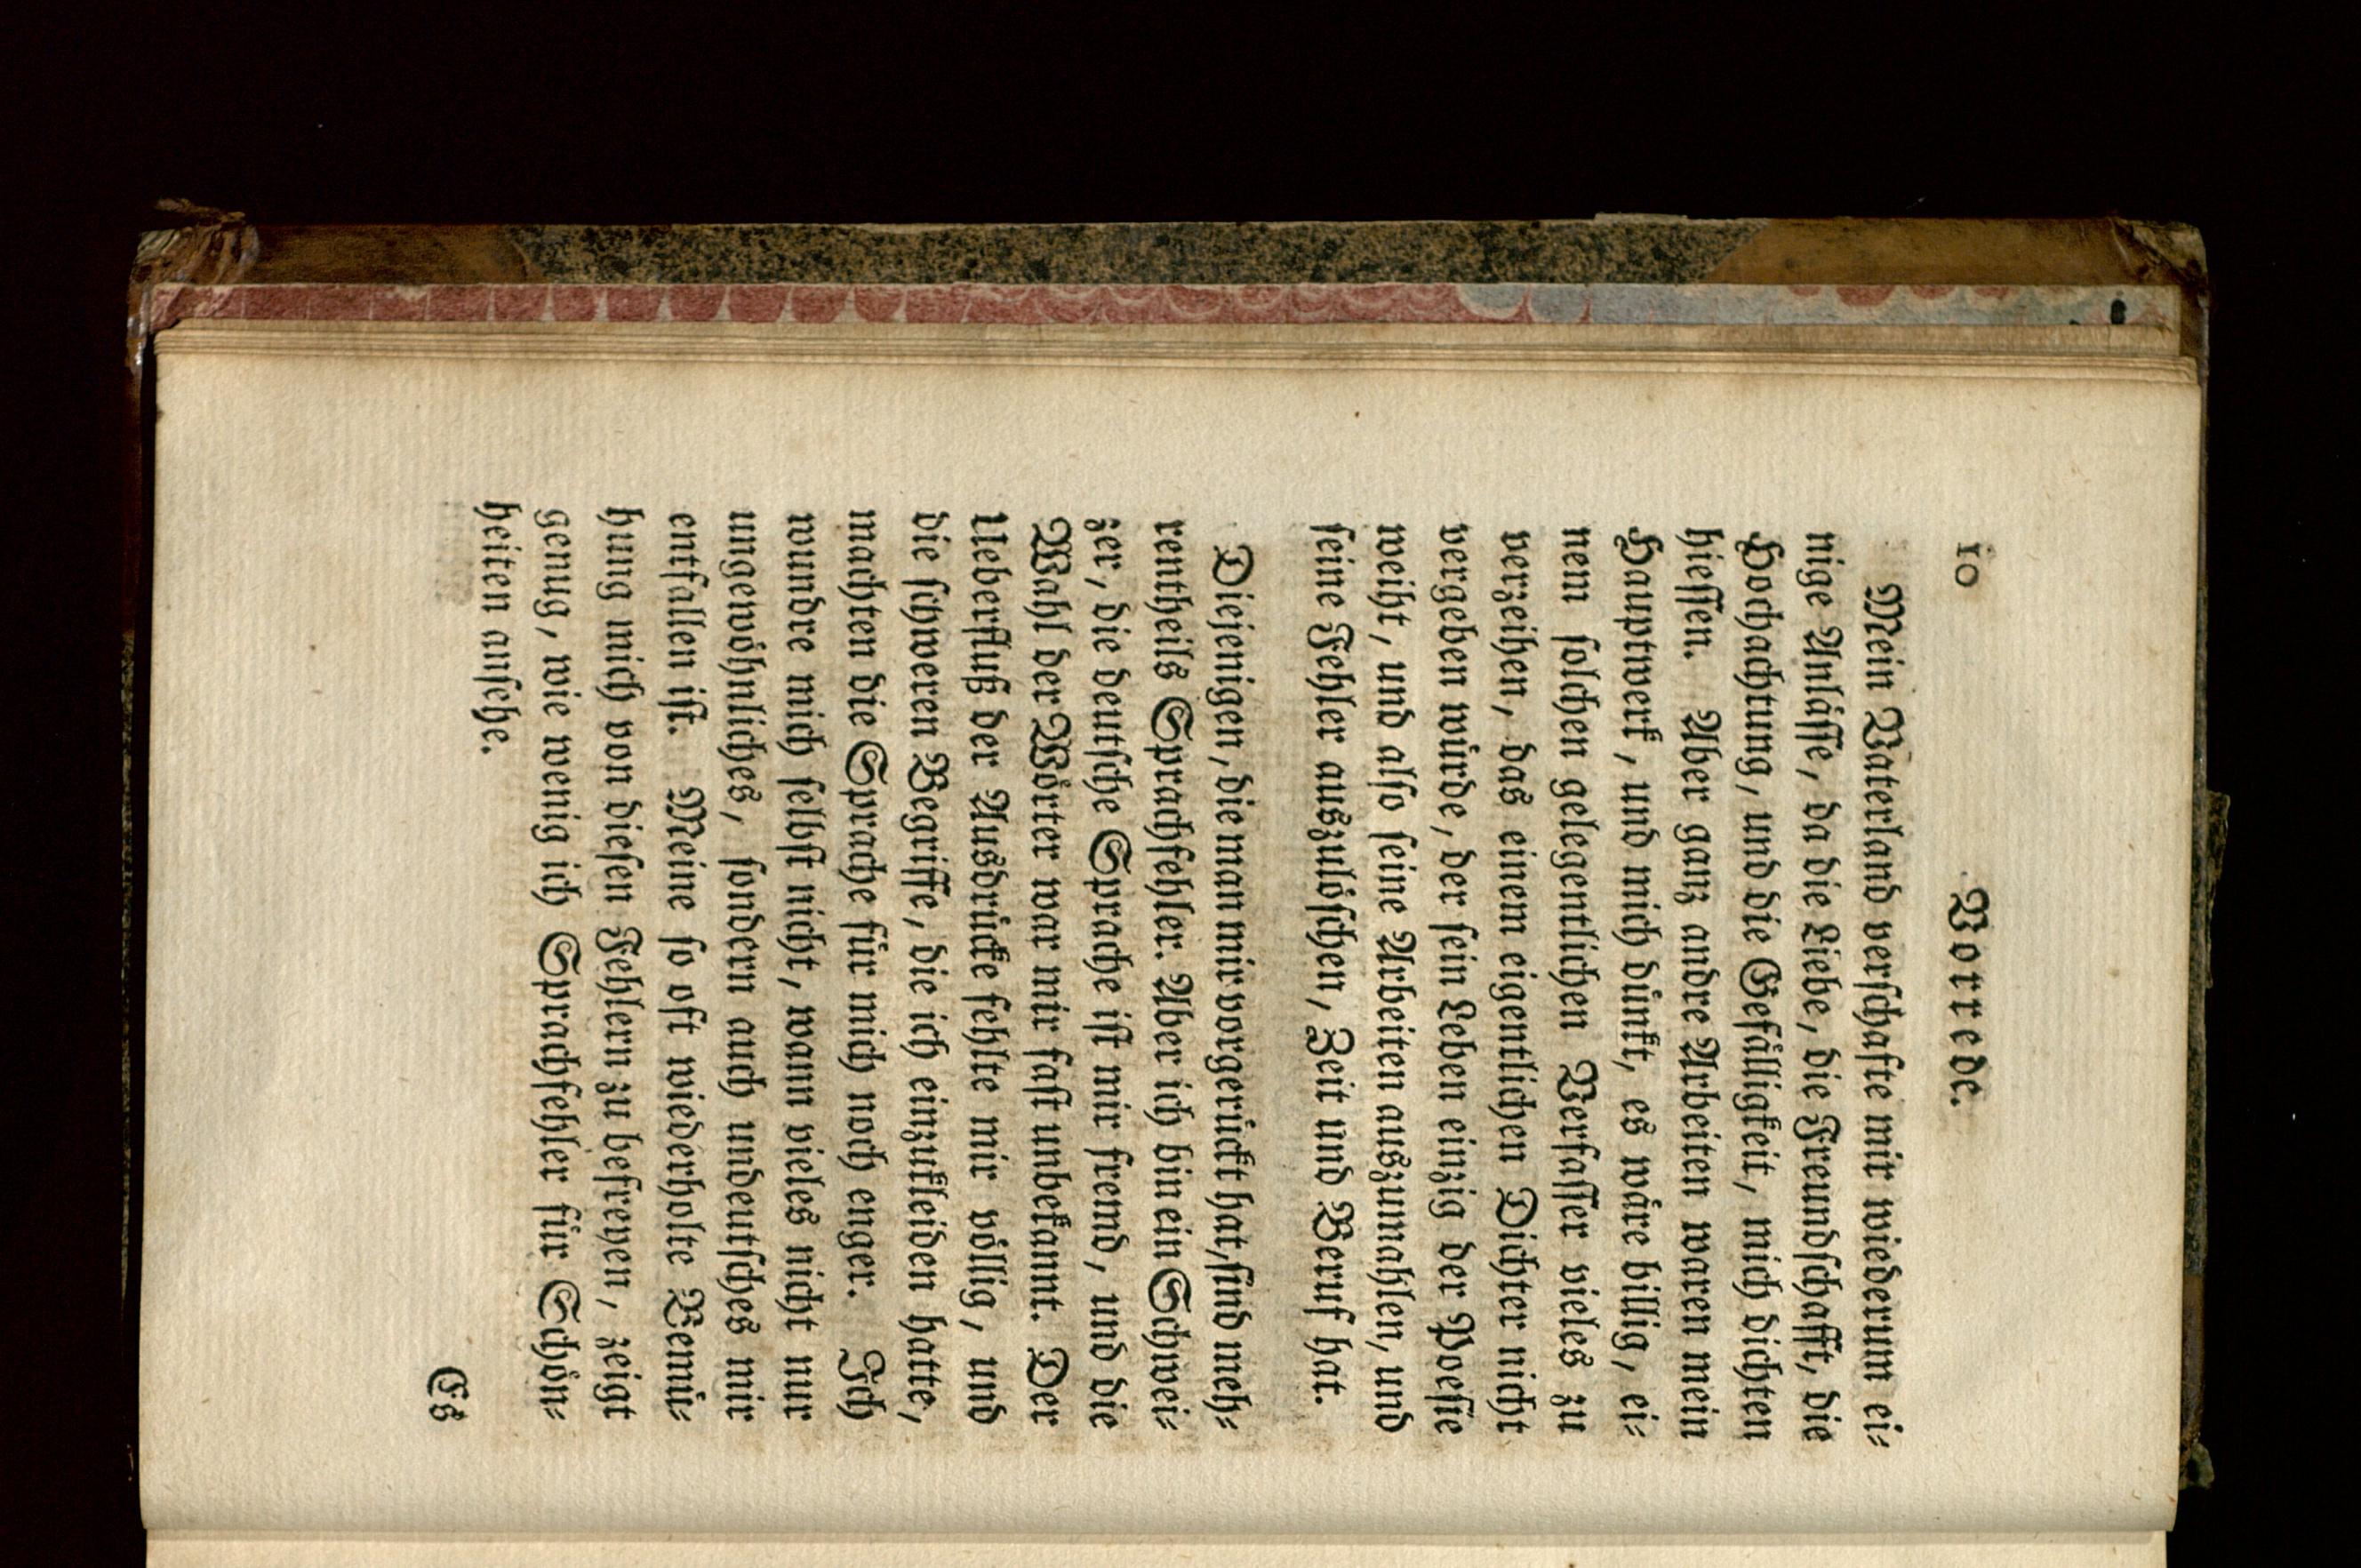 10 Vorrede.
Mein Vaterland verschafte mir wiederum ei⸗
nige Anläsſe, da die Liebe, die Freundschafft, die
Hochachtung, und die Gefälligkeit, mich dichten
hiesſen. Aber ganz andre Arbeiten waren mein
Hauptwerk, und mich dünkt, es wäre billig, ei⸗
nem solchen gelegentlichen Verfasſer vieles zu
verzeihen, das einem eigentlichen Dichter nicht
vergeben würde, der sein Leben einzig der Poesie
weiht, und also seine Arbeiten auszumahlen, und
seine Fehler auszulöschen, Zeit und Beruf hat.
Diejenigen, die man mir vorgerükt hat, sind meh⸗
rentheils Sprachfehler. Aber ich bin ein Schwei⸗
zer, die deutsche Sprache ist mir fremd, und die
Wahl der Wörter war mir fast unbekannt. Der
Ueberfluß der Ausdrücke fehlte mir völlig, und
die schweren Begriffe, die ich einzukleiden hatte,
machten die Sprache für mich noch enger. Ich
wundre mich selbst nicht, wann vieles nicht nur
ungewöhnliches, sondern auch undeutsches mir
entfallen ist. Meine so oft wiederholte Bemü⸗
hung mich von diesen Fehlern zu befreyen, zeigt
genug, wie wenig ich Sprachfehler für Schön⸗
heiten ansehe.
Es